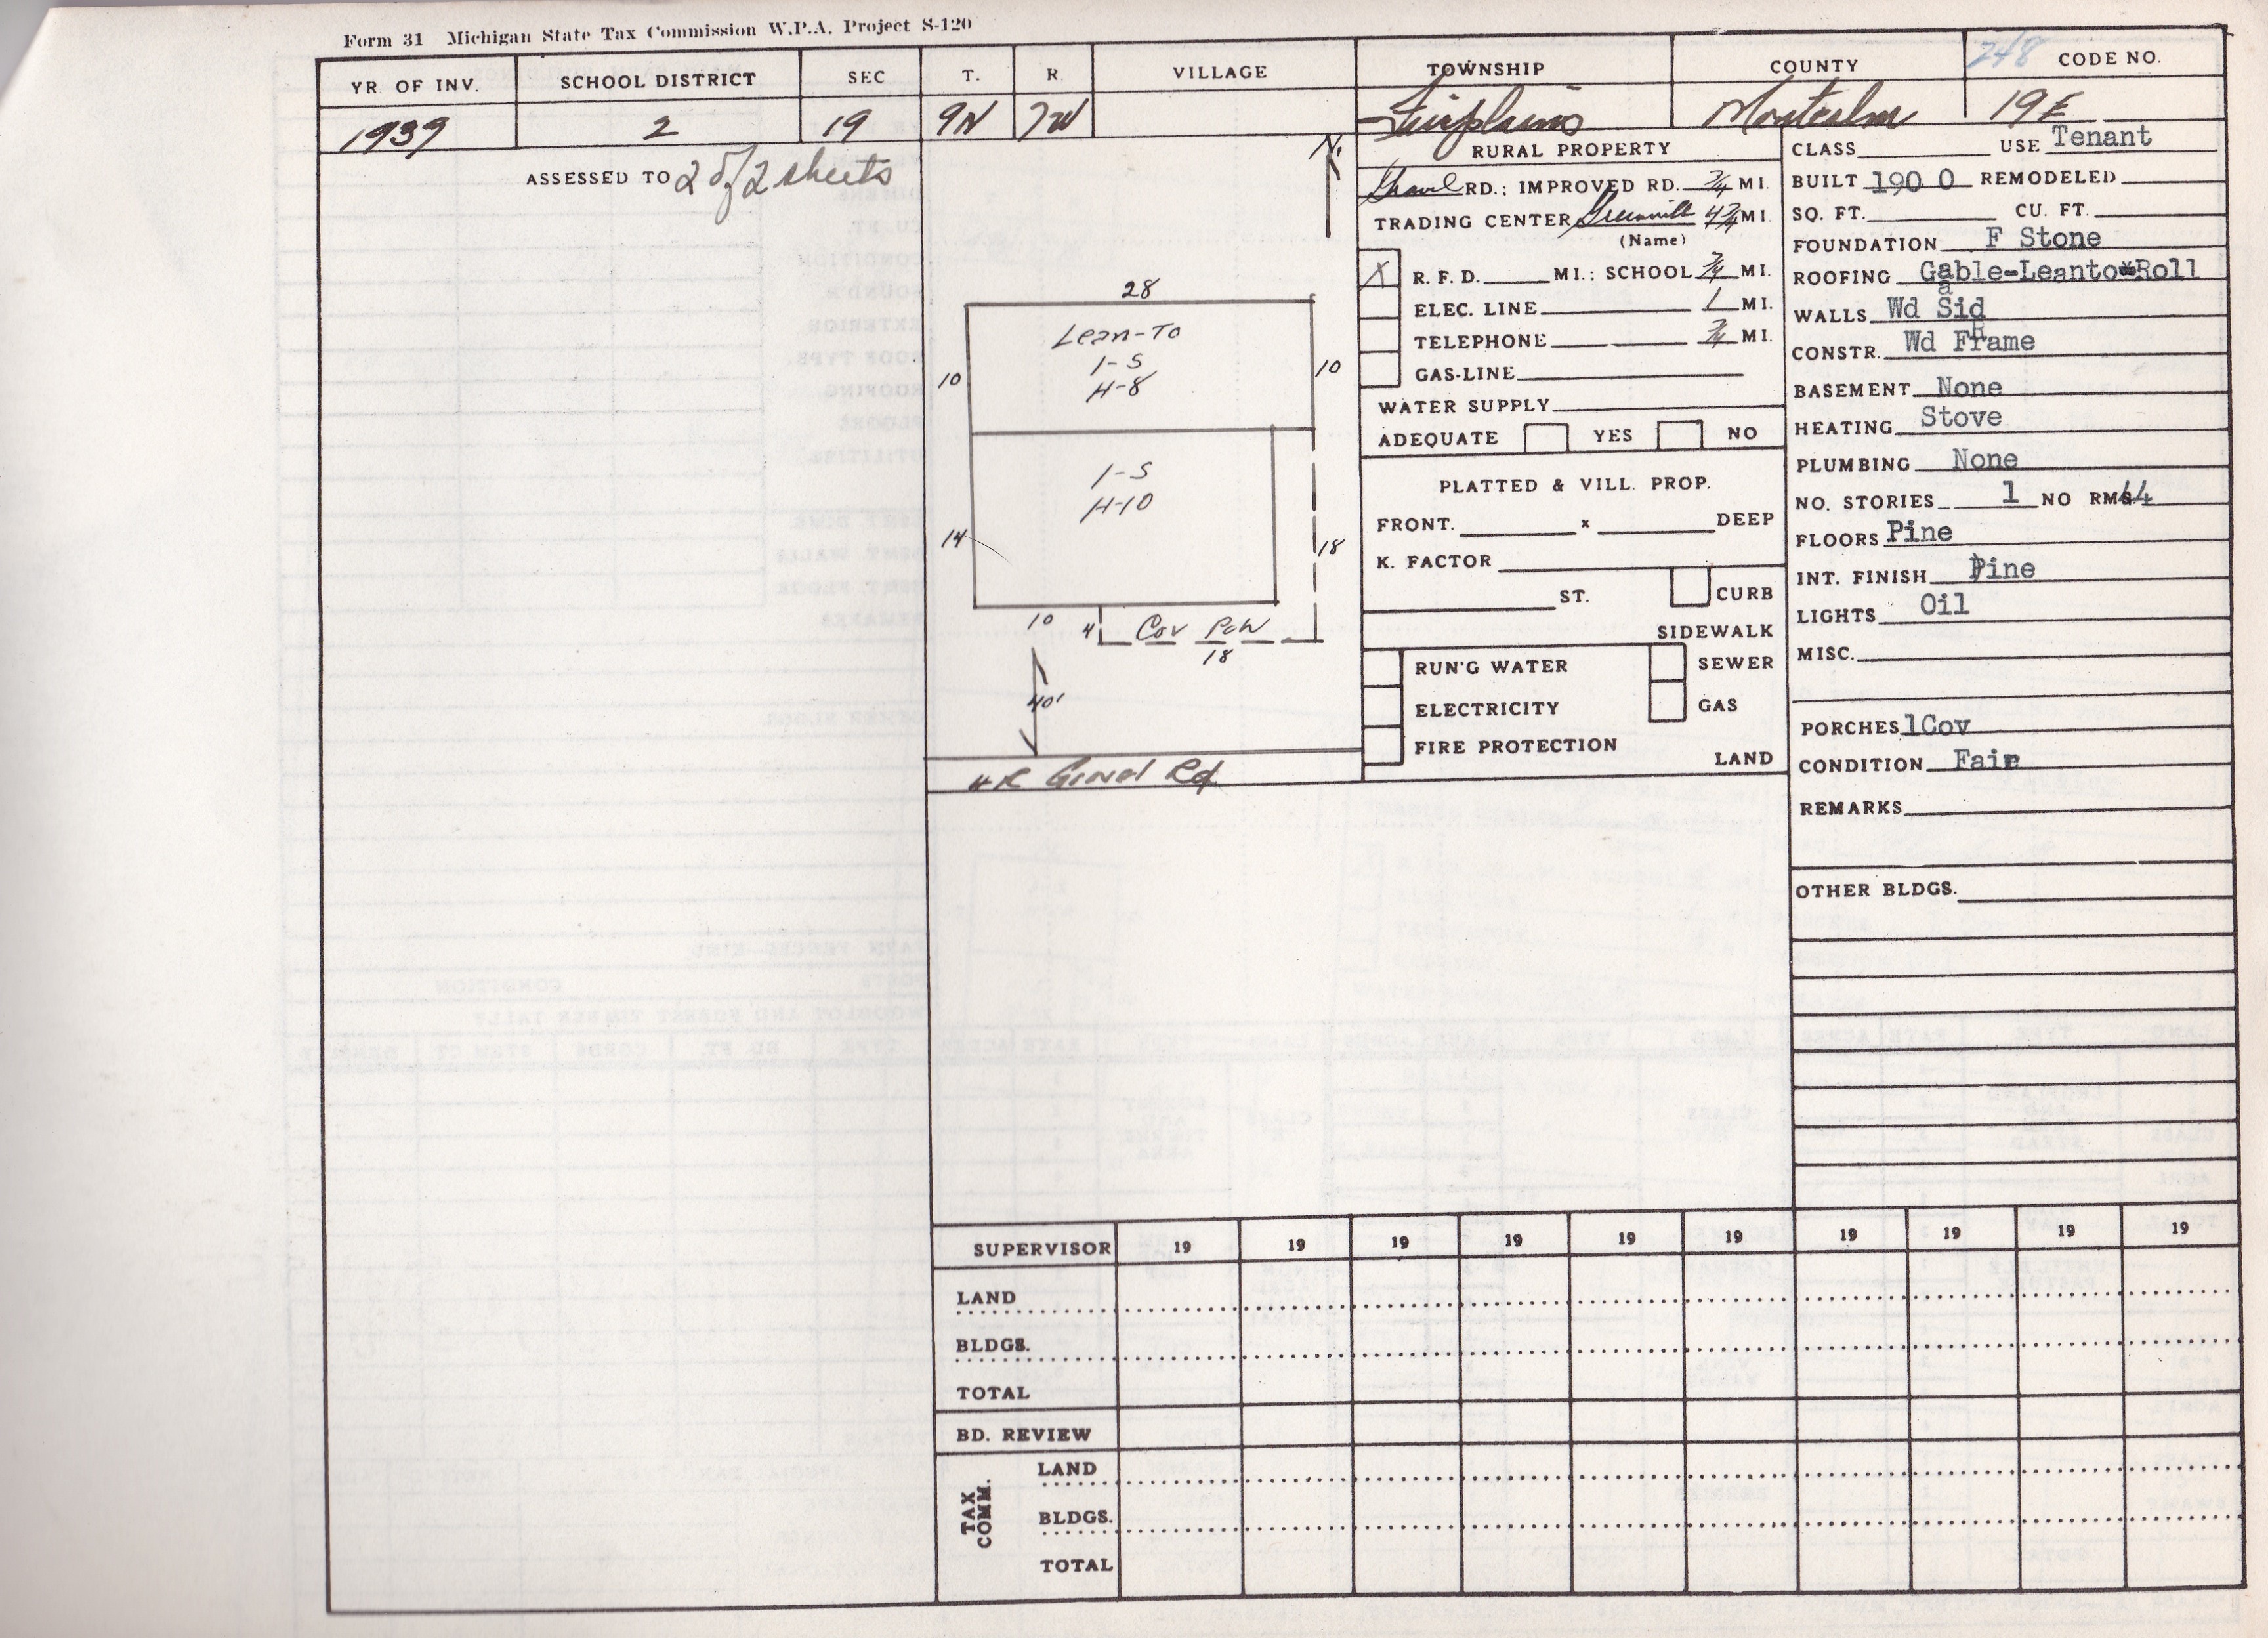 Form 31 Michigan State Tax Commission W.P.A. Project S-120
YR. OF INV. SCHOOL DISTRICT SEC T. R. VILLAGE TOWNSHIP COUNTY 248 CODE NO.
1939 2 19 9N 7W Fairplains Montcalm 19E
ASSESSED TO 2 of 2 sheets
N.
28
Lean-To
1-S
H-8
10 10
1-S
H-10
14 18
10 4 Cov Pch
18
40'
Gravel Rd
RURAL PROPERTY
Gravel RD.; IMPROVED RD. 3/4 MI.
TRADING CENTER Greenville 4 3/4 MI.
(Name)
X R. F. D. MI.; SCHOOL 3/4 MI.
ELEC. LINE 1 MI.
TELEPHONE 3/4 MI.
GAS-LINE
WATER SUPPLY
ADEQUATE YES NO
PLATTED & VILL. PROP.
FRONT. x DEEP
K. FACTOR
ST. CURB
SIDEWALK
RUN'G WATER SEWER
ELECTRICITY GAS
FIRE PROTECTION
LAND
CLASS USE Tenant
BUILT 1900 REMODELED
SQ. FT. CU. FT.
FOUNDATION F Stone
ROOFING Gable-Leanto-Roll
WALLS Wd Sid
CONSTR. Wd Frame
BASEMENT None
HEATING Stove
PLUMBING None
NO. STORIES 1 NO RMS 4
FLOORS Pine
INT. FINISH Pine
LIGHTS Oil
MISC.
PORCHES 1Cov
CONDITION Fair
REMARKS
OTHER BLDGS.
SUPERVISOR 19 19 19 19 19 19 19 19 19 19
LAND
BLDGS.
TOTAL
BD. REVIEW
TAX COMM.
LAND
BLDGS.
TOTAL